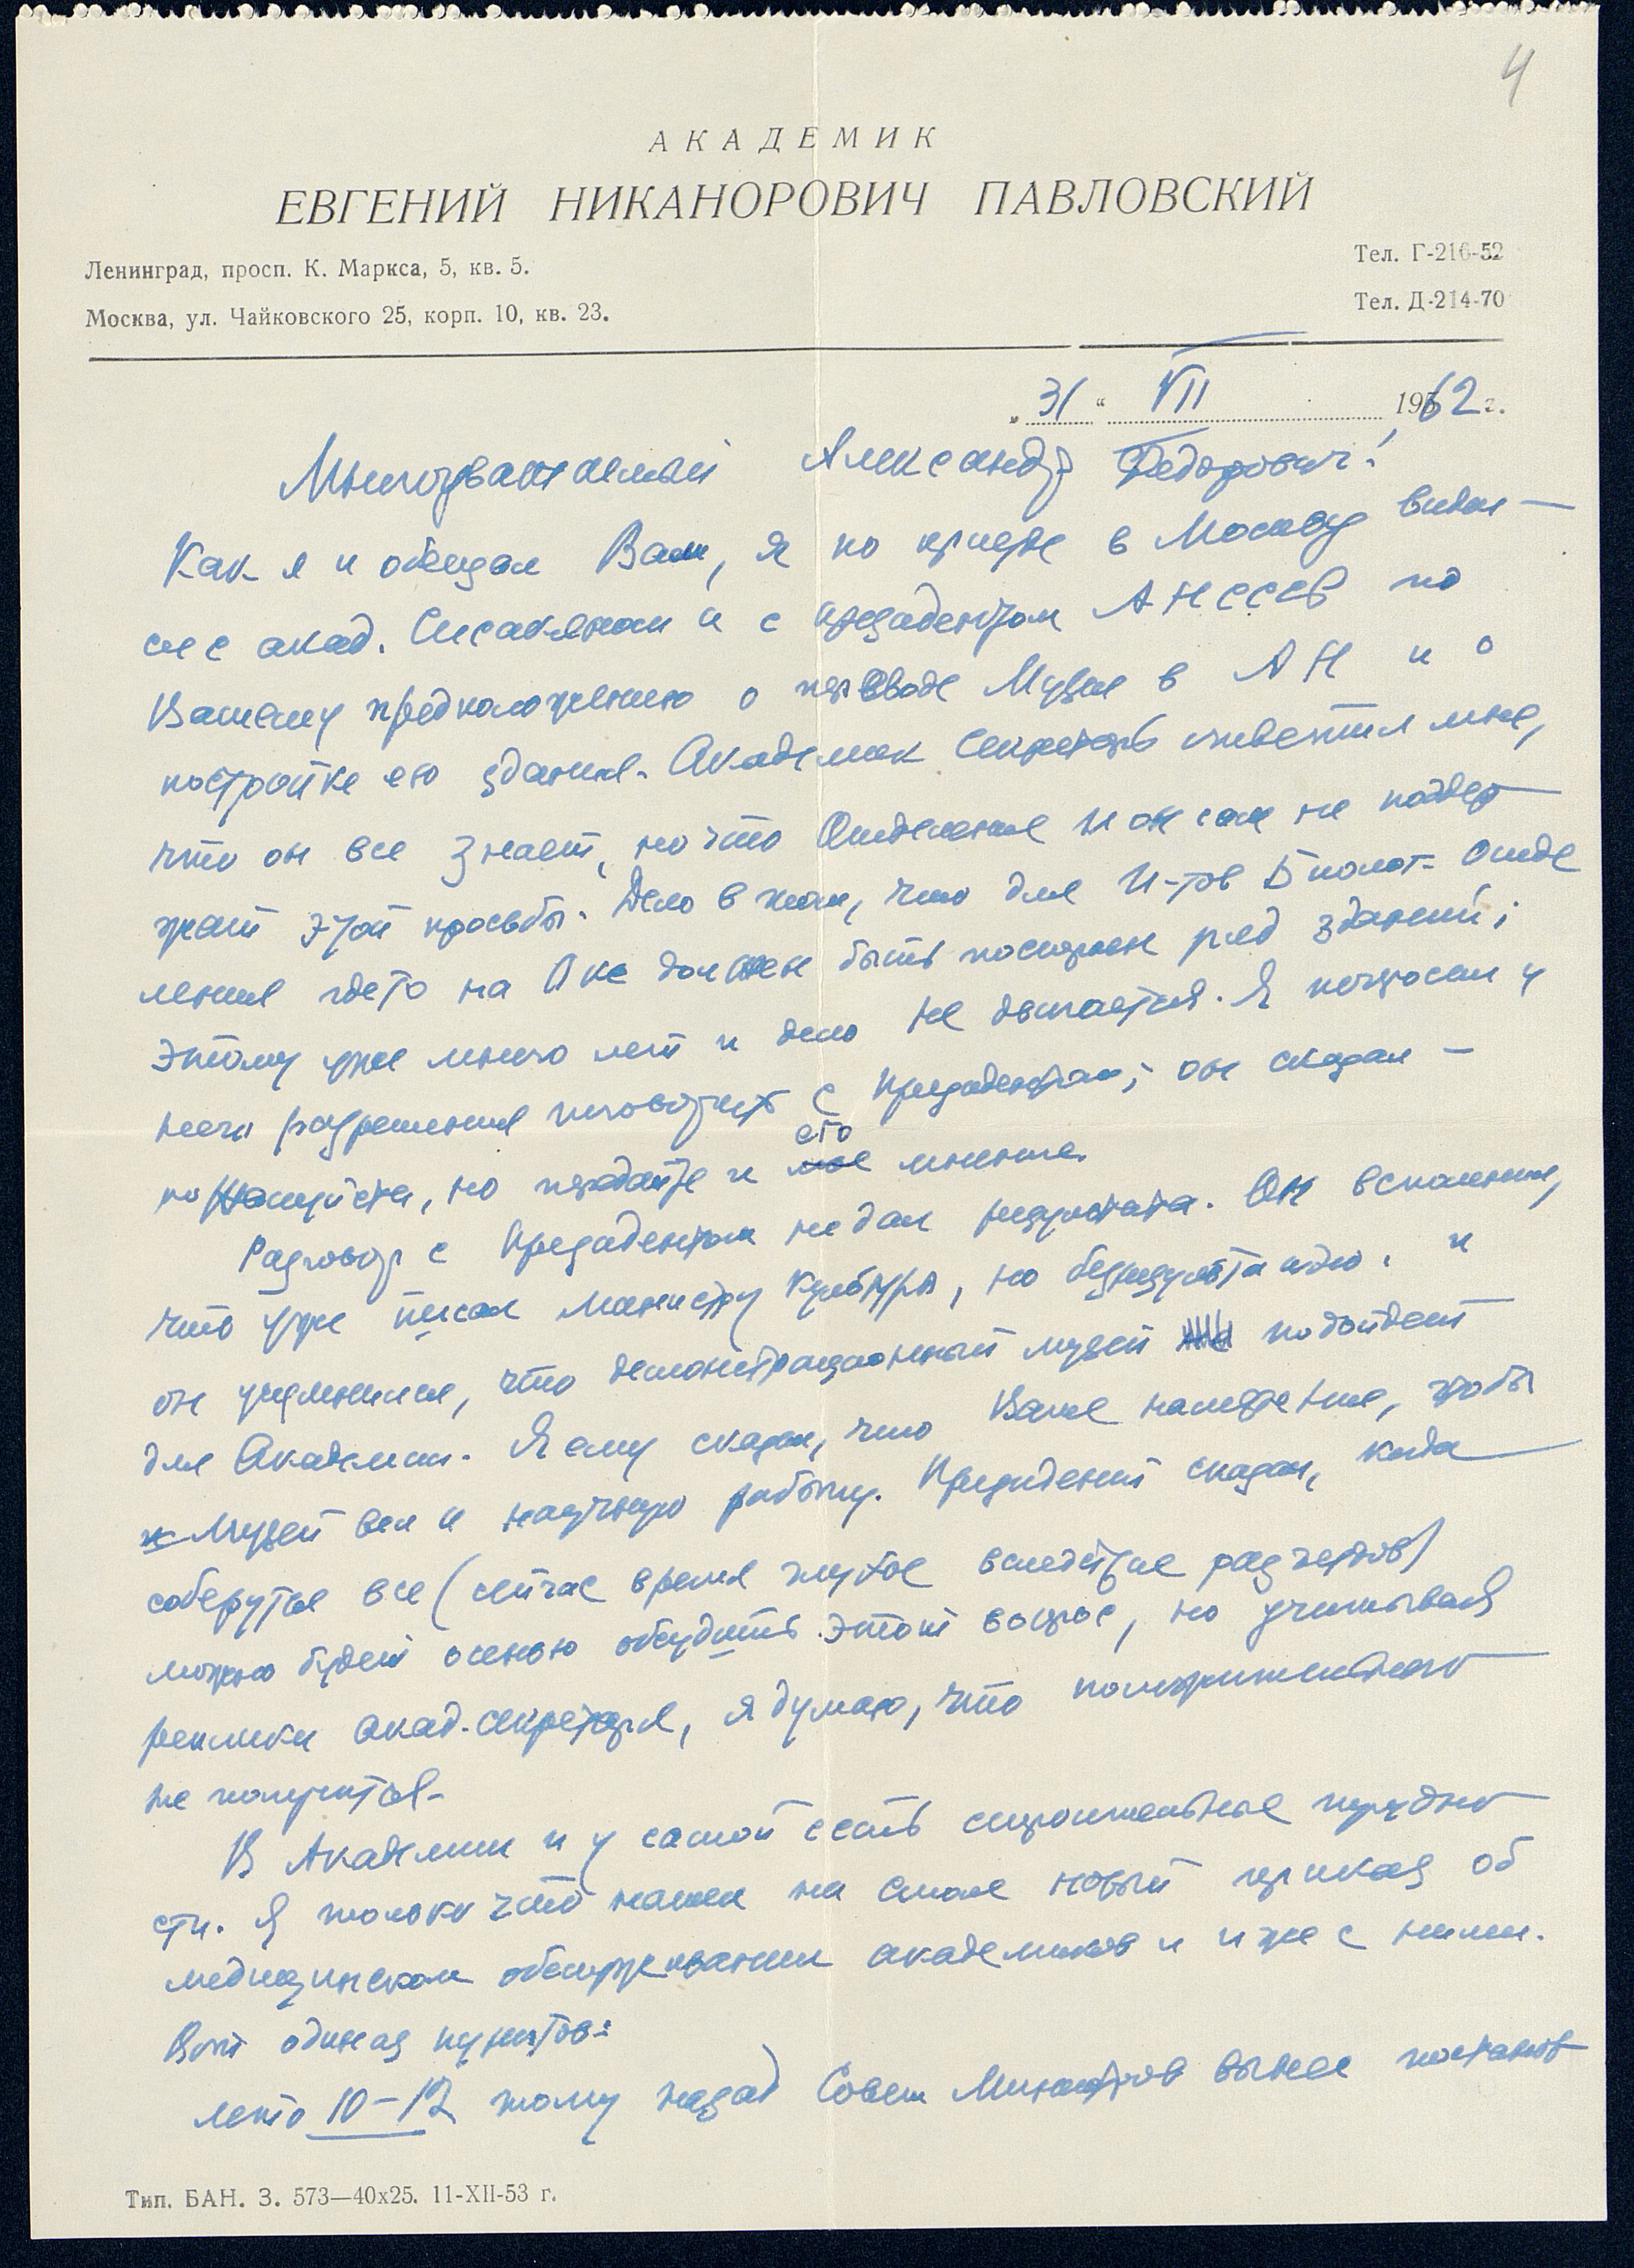 4
АКАДЕМИК
ЕВГЕНИЙ НИКАНОРОВИЧ ПАВЛОВСКИЙ
Ленинград, просп. К. Маркса, 5, кв. 5.
Тел. Г-216-52
Москва, ул. Чайковского 25, корп. 10, кв. 23.
Тел. Д-214-70
„31“ VII 1962 г.
Многоуважаемый Александр Федорович!
Как я и обещал Вам, я по приезде в Москву видел-
ся с акад. Сисакяном и с президентом АН СССР по
Вашему предположению о переводе Музея в АН и о
постройке его здания. Академик Секретарь ответил мне,
что он все знает, но что Отделение и он сам не поддер-
жат этой просьбы. Дело в том, что для И-тов Биолог. Отде
ления где то на Оке должен быть построен ряд зданий;
этому уже много лет и дело не двигается. Я попросил у
него разрешения поговорить с Президентом; он сказал -
пожалуйста, но передайте и его мнение.
Разговор с Президентом не дал результата. Он вспомнил,
что уже писал Министру Культуры, но безрезультатно. и
он усумнился, что демонстрационный музей подойдет
для Академии. Я ему сказал, что Ваше намерение, чтобы
Музей вел и научную работу. Президент сказал, когда
соберутся все (сейчас время глухое вследствие разъездов)
можно будет осенью обсудить этот вопрос, но учитывая
реплики акад. секретаря, я думаю, что положительного
не получится.
В Академии и у самой есть строительные трудно
сти. Я только что нашел на столе новый приказ об
медицинском обслуживании академиков и иже с ними.
Вот один из пунктов:
лет 10-12 тому назад Совет Министров вынес постанов
Тип. БАН. З. 573—40х25. 11-XII-53 г.